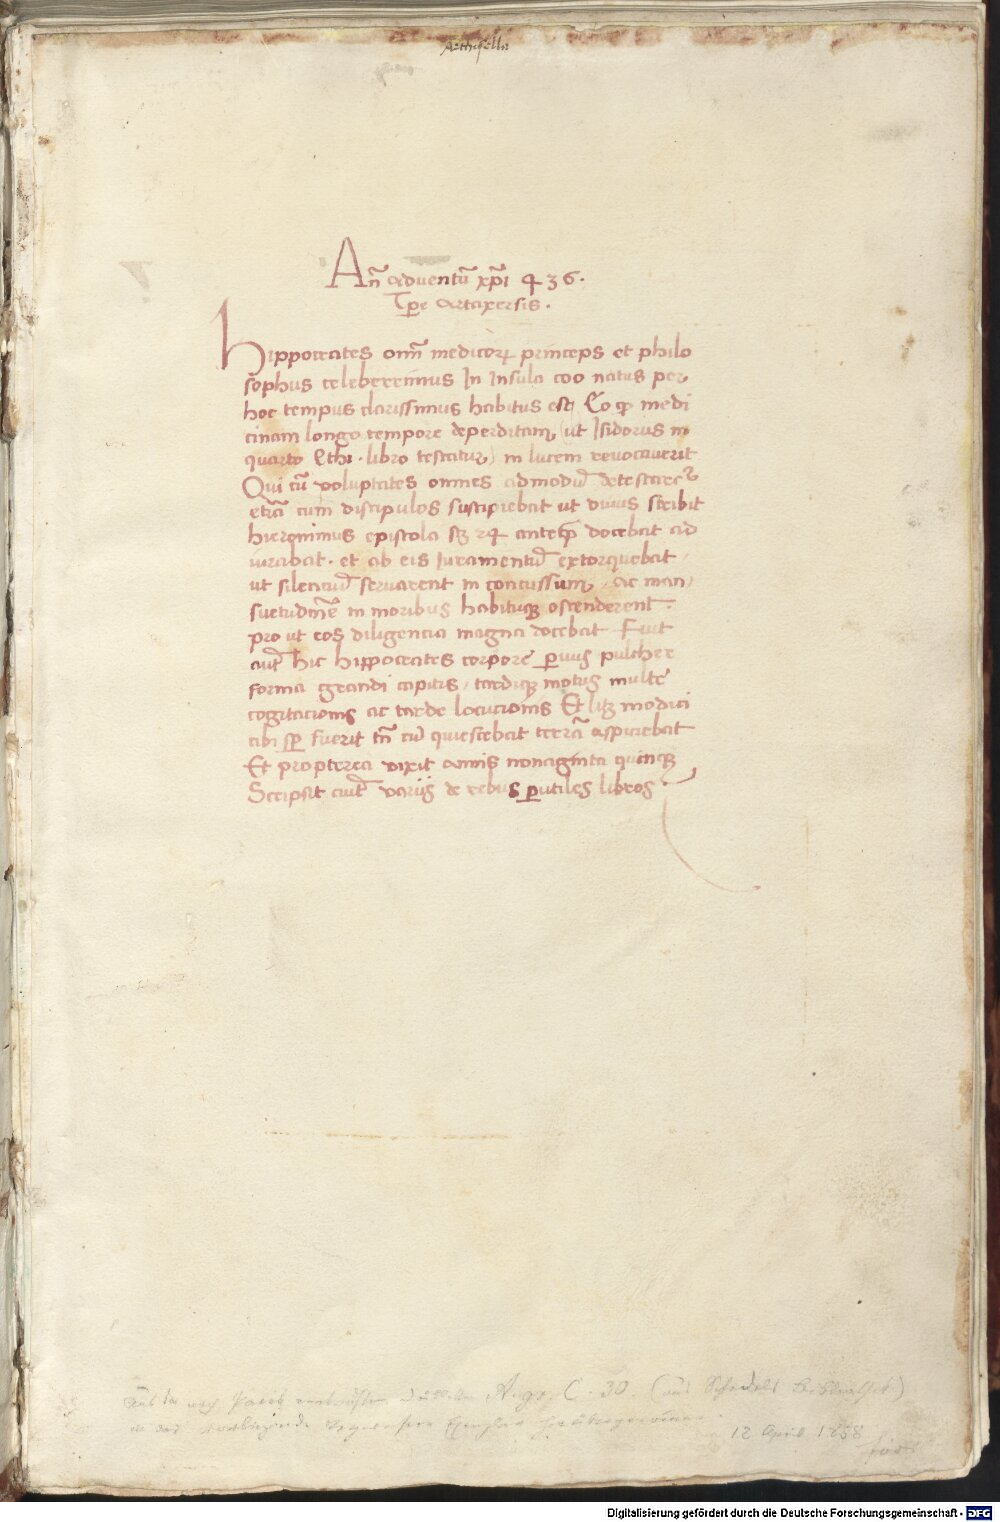 Arthisella
An̄ adventū xp̄i 436.
Tp̄e artaxersis.
Hippocrates om̄ medicoꝝ princeps et philo
sophus celeberrimus In Insula coo natus per
hoc tempus clarissimus habitus est Eo ꝙ medi
cinam longo tempore deperditam (ut Isidorus in
quarto Ethi. libro testatur) in lucem revocaverit
Qui cū voluptates omnes admodū detestaret᷑
etiā cum discipulos suscipiebat ut divus scribit
hieronimus epistola 24 docebat ad
iurabat. et ab eis Iuramentū extorquebat,
ut silentiū servarent in concussum, ac man/
suetudinē in moribus habituqꝫ ostenderent.
pro ut eos diligencia magna docebat Fuit
aut̄ hic hippocrates corpore ꝑvus pulcher
forma grandi capitis, tardiqꝫ motus multe
cogitacionis ac tarde locucionis Et modici
cibi fuerit cū quiescebat terrā aspiciebat
Et propterea vixit annis nonaginta quinqꝫ
Scripsit aut̄ variis de rebus ꝑutiles libros.
C. 30. (aus Schedels Bibliothek)
12 April 1858
Digitalisierung gefördert durch die Deutsche Forschungsgemeinschaft - DFG